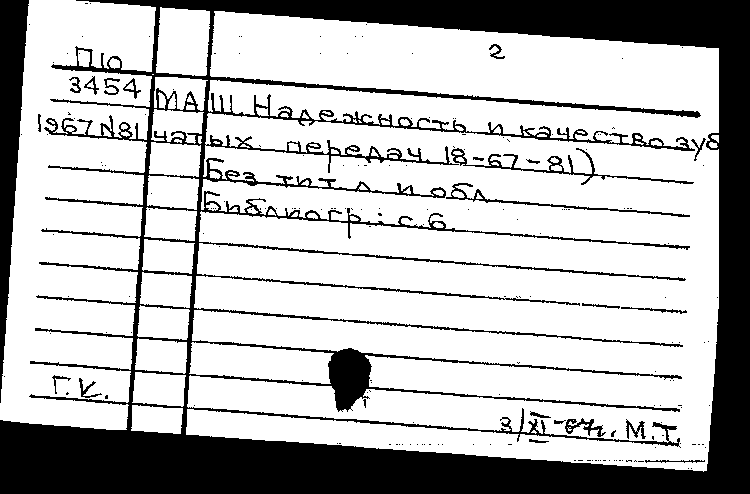 2
П10
3454 МАШ. Надежность и качество зуб
1967 N81 чатых передач. 18-67-81).
Без тит. л. и обл.
Библиогр.: с. 6.
Г.К.
3/XI-67г. М.Т.